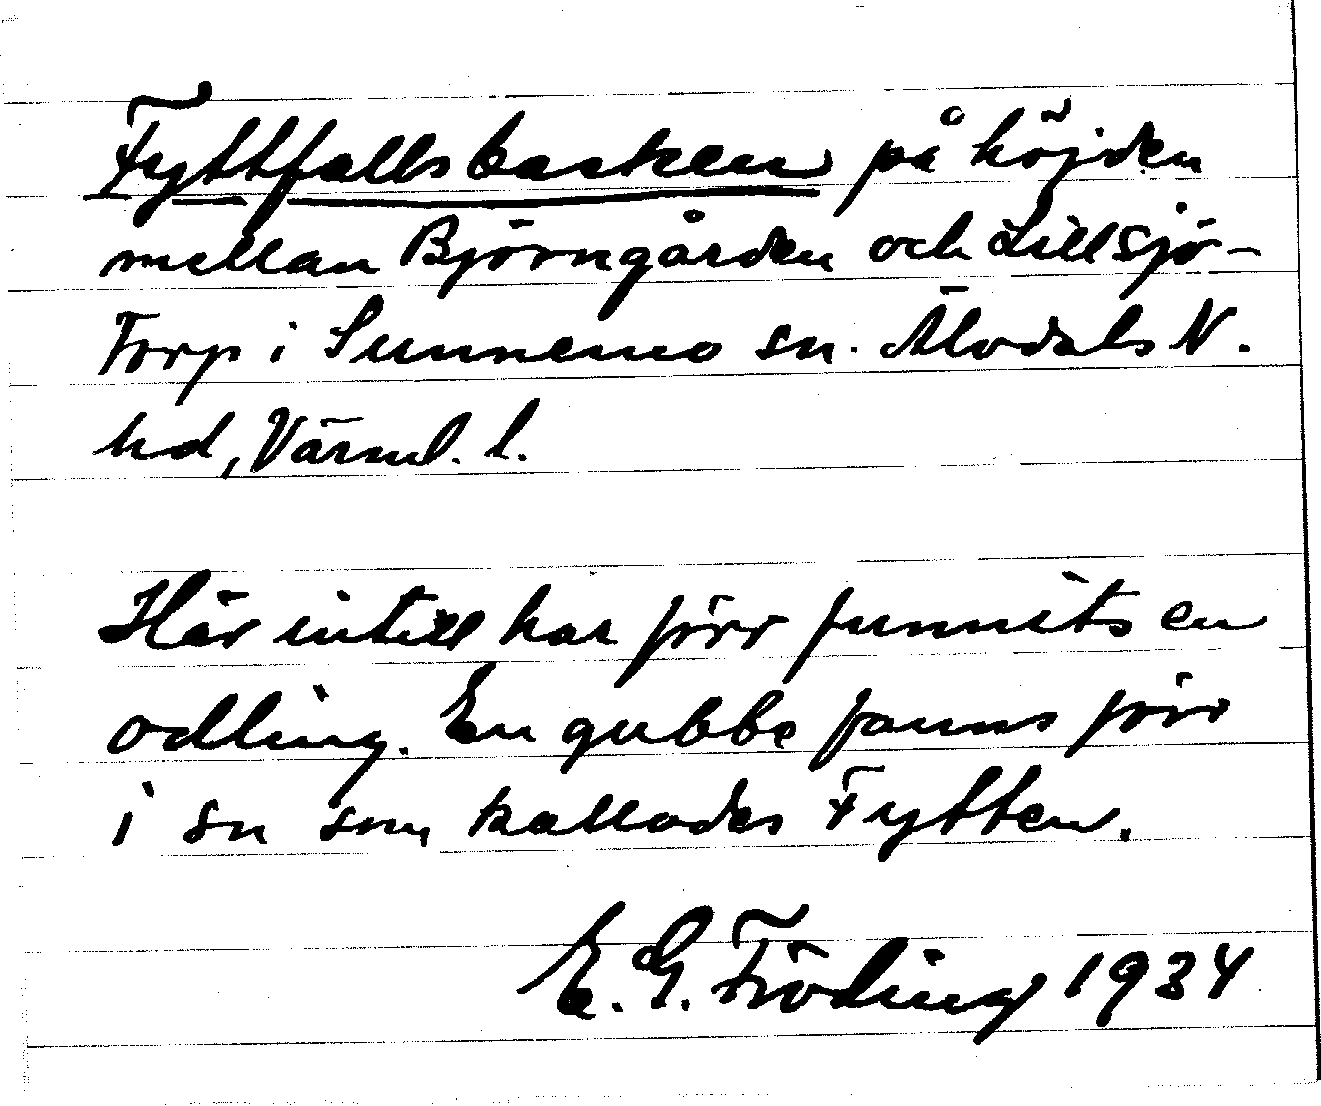 Fyttfallsbacken på höjden
mellan Björngården och Lillsjö-
Torp i Sunnemo sn. Älvdals N.
hd, Värml. l.
Här intill har förr funnits en
odling. En gubbe fanns förr
i sn som kallades Fytten.
E. G. Fröding 1934